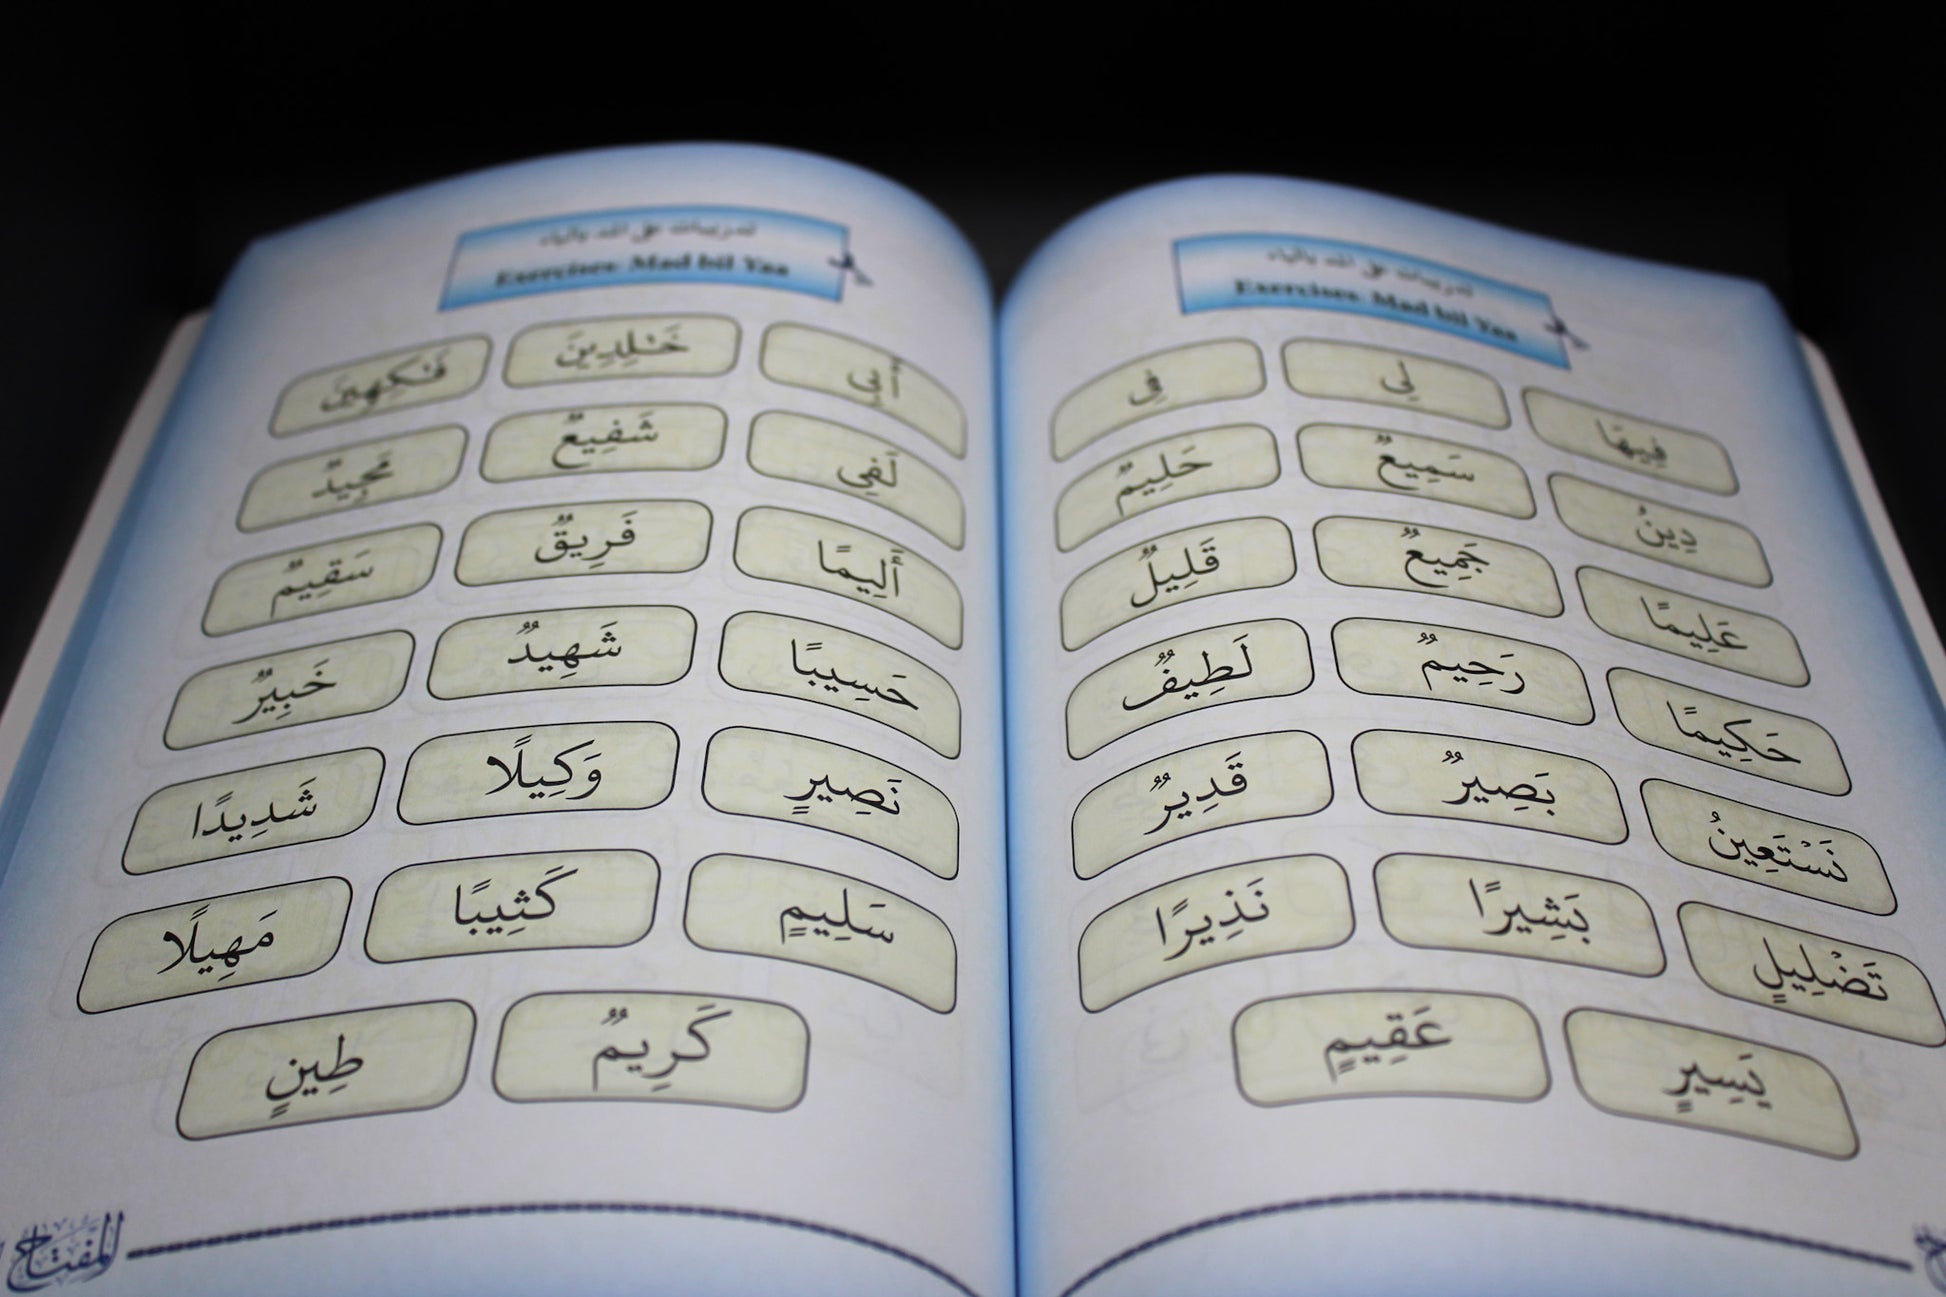 تدريبات على المد بالياء
Exercises: Mad bil Yaa
فِيهَا لِى فِى
دِينُ سَمِيعٌ حَلِيمٌ
عَلِيمًا جَمِيعٌ قَلِيلٌ
حَكِيمًا رَحِيمٌ لَطِيفٌ
نَسْتَعِينُ بَصِيرٌ قَدِيرٌ
تَضْلِيلٍ بَشِيرًا نَذِيرًا
يَسِيرٍ عَقِيمٍ
تدريبات على المد بالياء
Exercises: Mad bil Yaa
خَـٰلِدِينَ فَـٰكِهِينَ
لَفِى شَفِيعٌ مَجِيدٌ
أَلِيمًا فَرِيقٌ سَقِيمٌ
حَسِيبًا شَهِيدٌ خَبِيرٌ
نَصِيرٍ وَكِيلًا شَدِيدًا
سَلِيمٍ كَثِيبًا مَهِيلًا
كَرِيمٌ طِينٍ
المفتاح